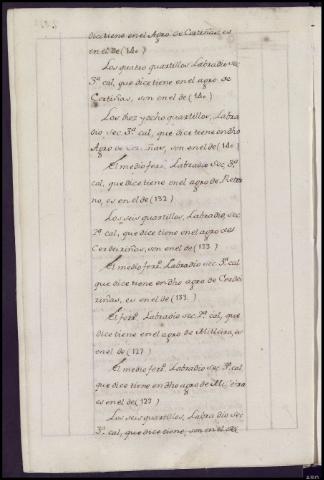 dice tiene en el Agro de Cortiñas, es
en el de (140)
Los quatro quartillos Labradio sec.
3ª cal, que dice tiene en el agro de
Cortiñas, son en el de (140)
Los diez y ocho quartillos, Labra
dio sec. 3ª cal, que dice tiene en dho
Agro de Cortiñas, son en el de (140)
El medio ferr. Labradio sec. 3ª
cal, que dice tiene en el agro de
no, es en el de (132)
Los seis quartillos, Labradio, sec.
2ª cal, que dice tiene en el agro das
Cerdeiriñas, son en el de (133)
El medio ferrº. Labradio sec. 3ª cal
que dice tiene en dho agro de Cerdei
riñas, es en el de (133)
El ferrº. Labradio sec. 2ª cal, que
dice tiene en el agro de Milleira, es
en el de (127)
El medio ferrº. Labradio sec. 3ª cal
que dice tiene en dho agro de Milleira
es en el de (127)
Los seis quartillos, Labradio sec
3ª cal, que dice tiene, son en el de